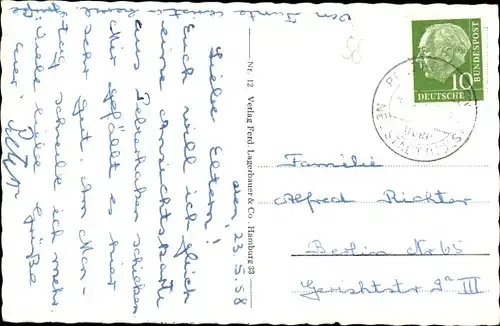 den, 23.5.58
Liebe Eltern!
Euch will ich gleich
eine Ansichtskarte
aus Pelzerhaken schicken
Mir gefällt es hier
sehr gut. Am Mon-
tag schreibe ich mehr.
Viele liebe Grüße
euer Peter
von Tante
Nr. 12 Verlag Ferd. Lagerbauer & Co., Hamburg 33
58
10
DEUTSCHE
BUNDESPOST
Familie
Alfred Richter
Berlin N 65
Gerichtstr III